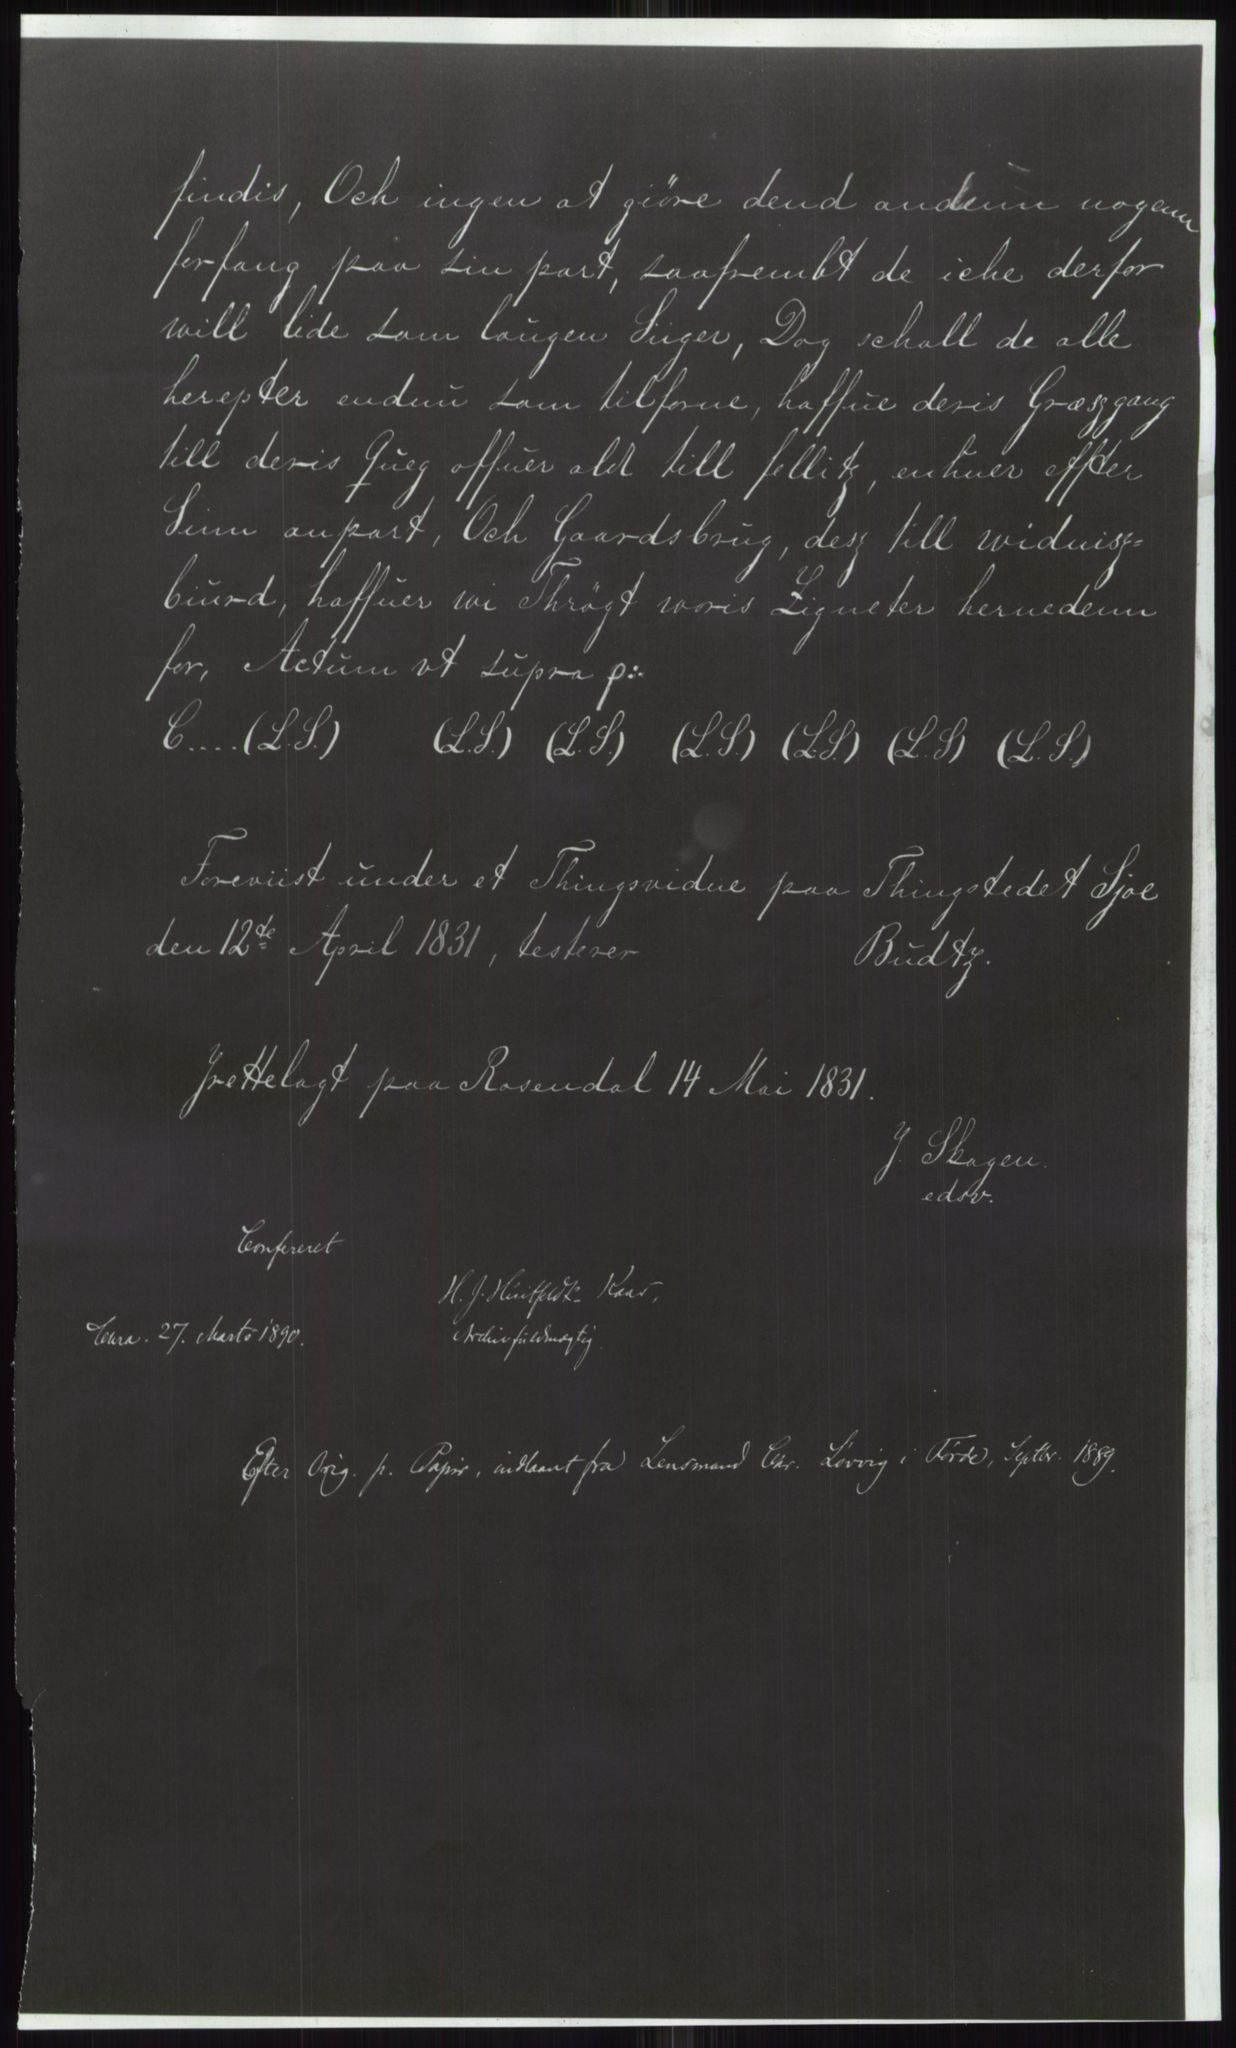 findis, Och ingen at giöre dend andenn nogenn
forfang paa sin part, saafrembt de iche derfor
will lide som laugen Siiger, Dog schall de alle
herepter endnu som tilforne, haffue deris Græszgang
till deris Queg offuer alt till fellitz, enhuer effter
Sinn anpart, Och Gaardsbrug, desz till widnisz=
biurd, haffuer wi Thrögt woris Zigneter hernedenn
for, Actum vt supra p:
C....(L.S.) (L.S.) (L.S.) (L.S.) (L.S.) (L.S) (L.S.)
Foreviist under et Thingsvidne paa Thingstedet Sjoe
den 12te April 1831, testerer Budtz.
Irettelagt paa Rosendal 14 Mai 1831.
J. Skagen.
edsv.
Confereret
H. J. Huitfeldt-Kaas,
Chra. 27. Marts 1890. Archivfuldmægtig.
Efter Orig. p. Papir, indlaant fra Lensmand Chr. Løvvig i Førde, Septbr. 1889.